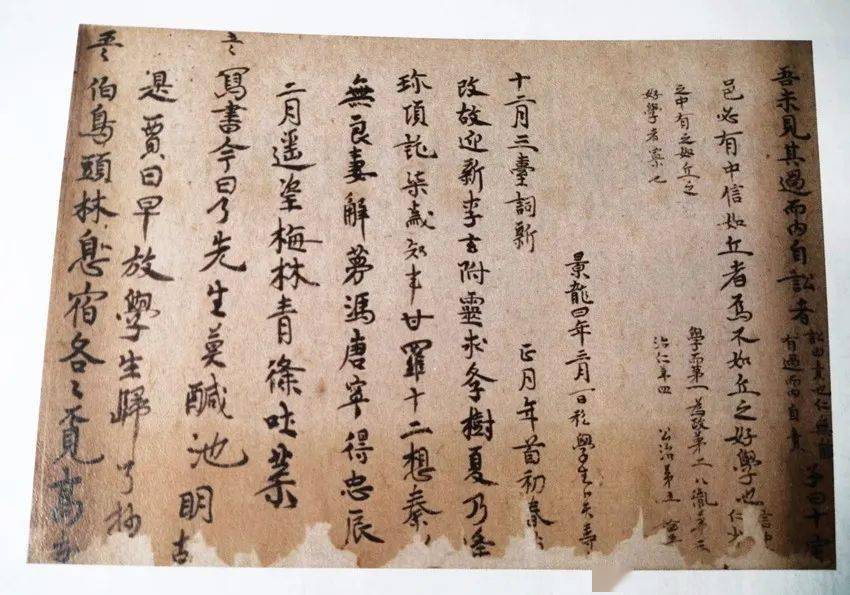 吾未見其過而内自訟者
有過而内自責
子曰十室
邑必有中信如丘者焉不如丘之好學也
之中有之如丘之
好學者寡也
學而第一 為政第二 八佾第三
公冶第五
景龍四年三月一日私學生卜天壽
十二月三臺詞新 正月年首初春
改故迎新李玄附靈求學樹夏乃逢
珎項託柒歲知事甘羅十二想秦
無良妻解夢馮唐寧得忠辰
二月遥望梅林青條吐葉
寫書今日了先生莫醎池明
是賈日早放學生歸
伯鳥頭林息宿各々覓高